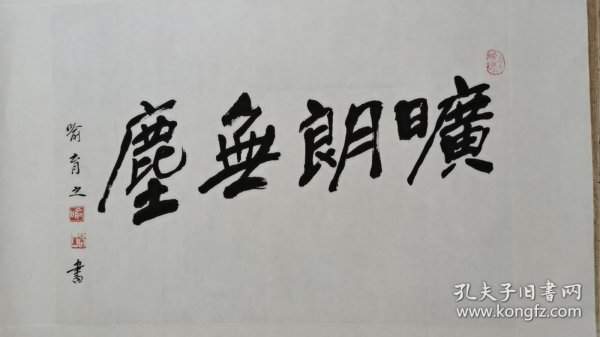 曠朗無塵
喻育之
書
孔夫子旧書网
www.kongfz.com